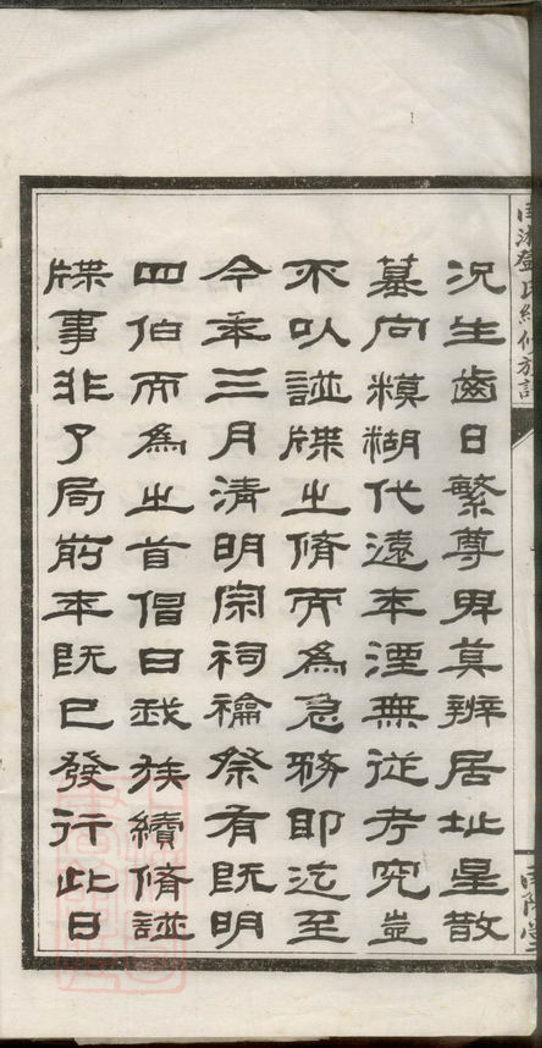 況生齒日繁尊卑莫辨居址星散
墓向糢糊代遠年湮無從考究豈
不以譜牒之脩而為急務耶迄至
今年三月清明宗祠禴祭有既明
四伯而為之首倡曰我族續脩譜
牒事非了局前年既已發行此日